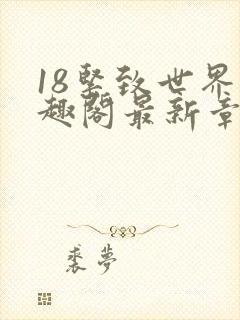 18坚致世界
趣阁最新章
裘梦